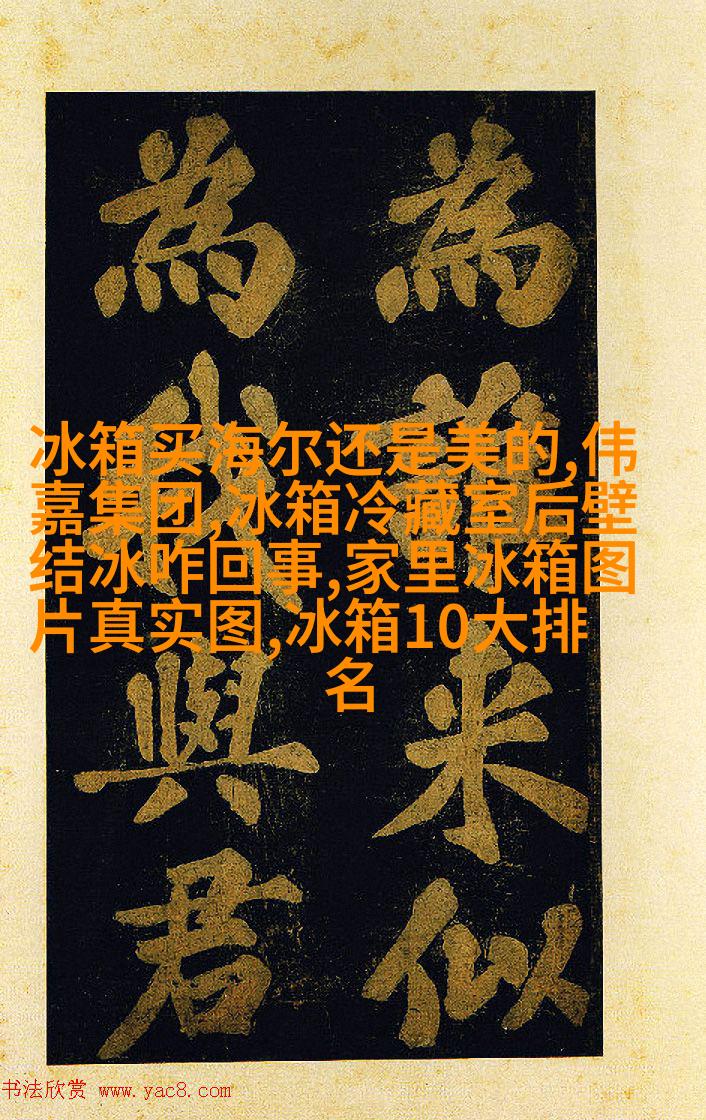 為誰来似
為我與君
冰箱买海尔还是美的,伟
嘉集团,冰箱冷藏室后壁
结冰咋回事,家里冰箱图
片真实图,冰箱10大排
名
书法欣赏 www.yac8.com